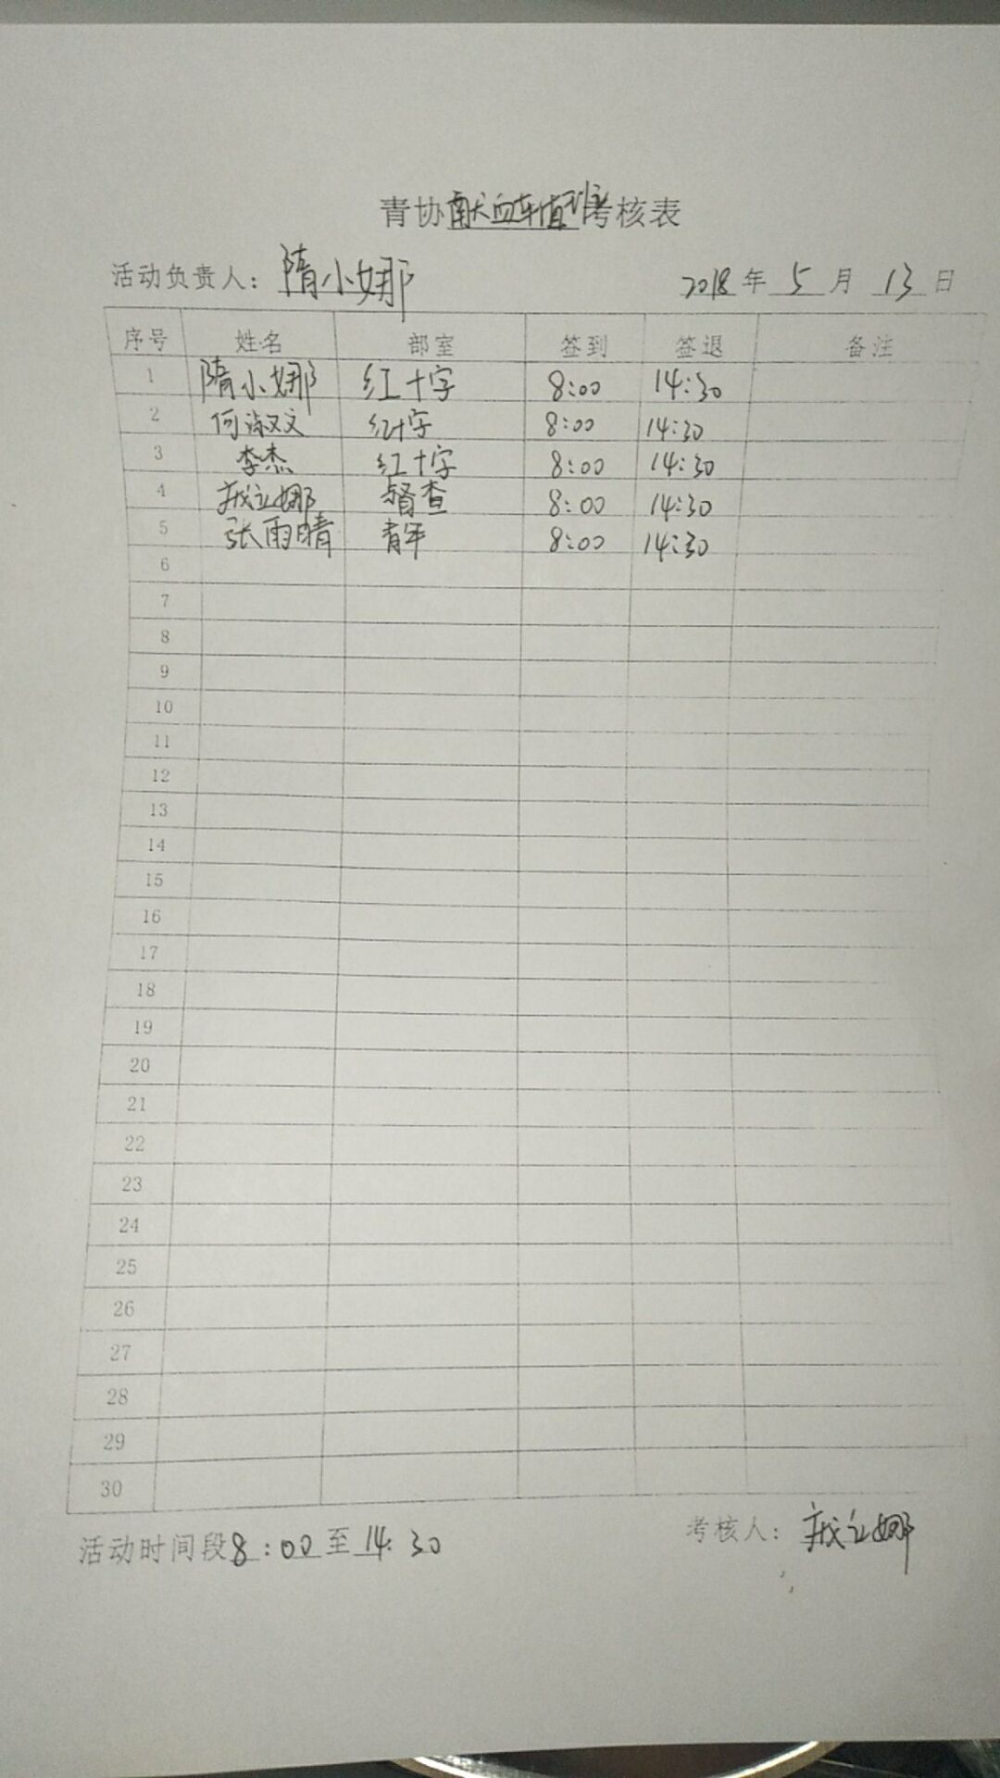 青协献血车值班考核表
活动负责人：隋小娜 2018年5月13日
序号 姓名 部室 签到 签退 备注
1 隋小娜 红十字 8:00 14:30
2 何淑文 红十字 8:00 14:30
3 李杰 红十字 8:00 14:30
4 督查 8:00 14:30
5 张雨晴 青年 8:00 14:30
6
7
8
9
10
11
12
13
14
15
16
17
18
19
20
21
22
23
24
25
26
27
28
29
30
活动时间段8:00至14:30 考核人：